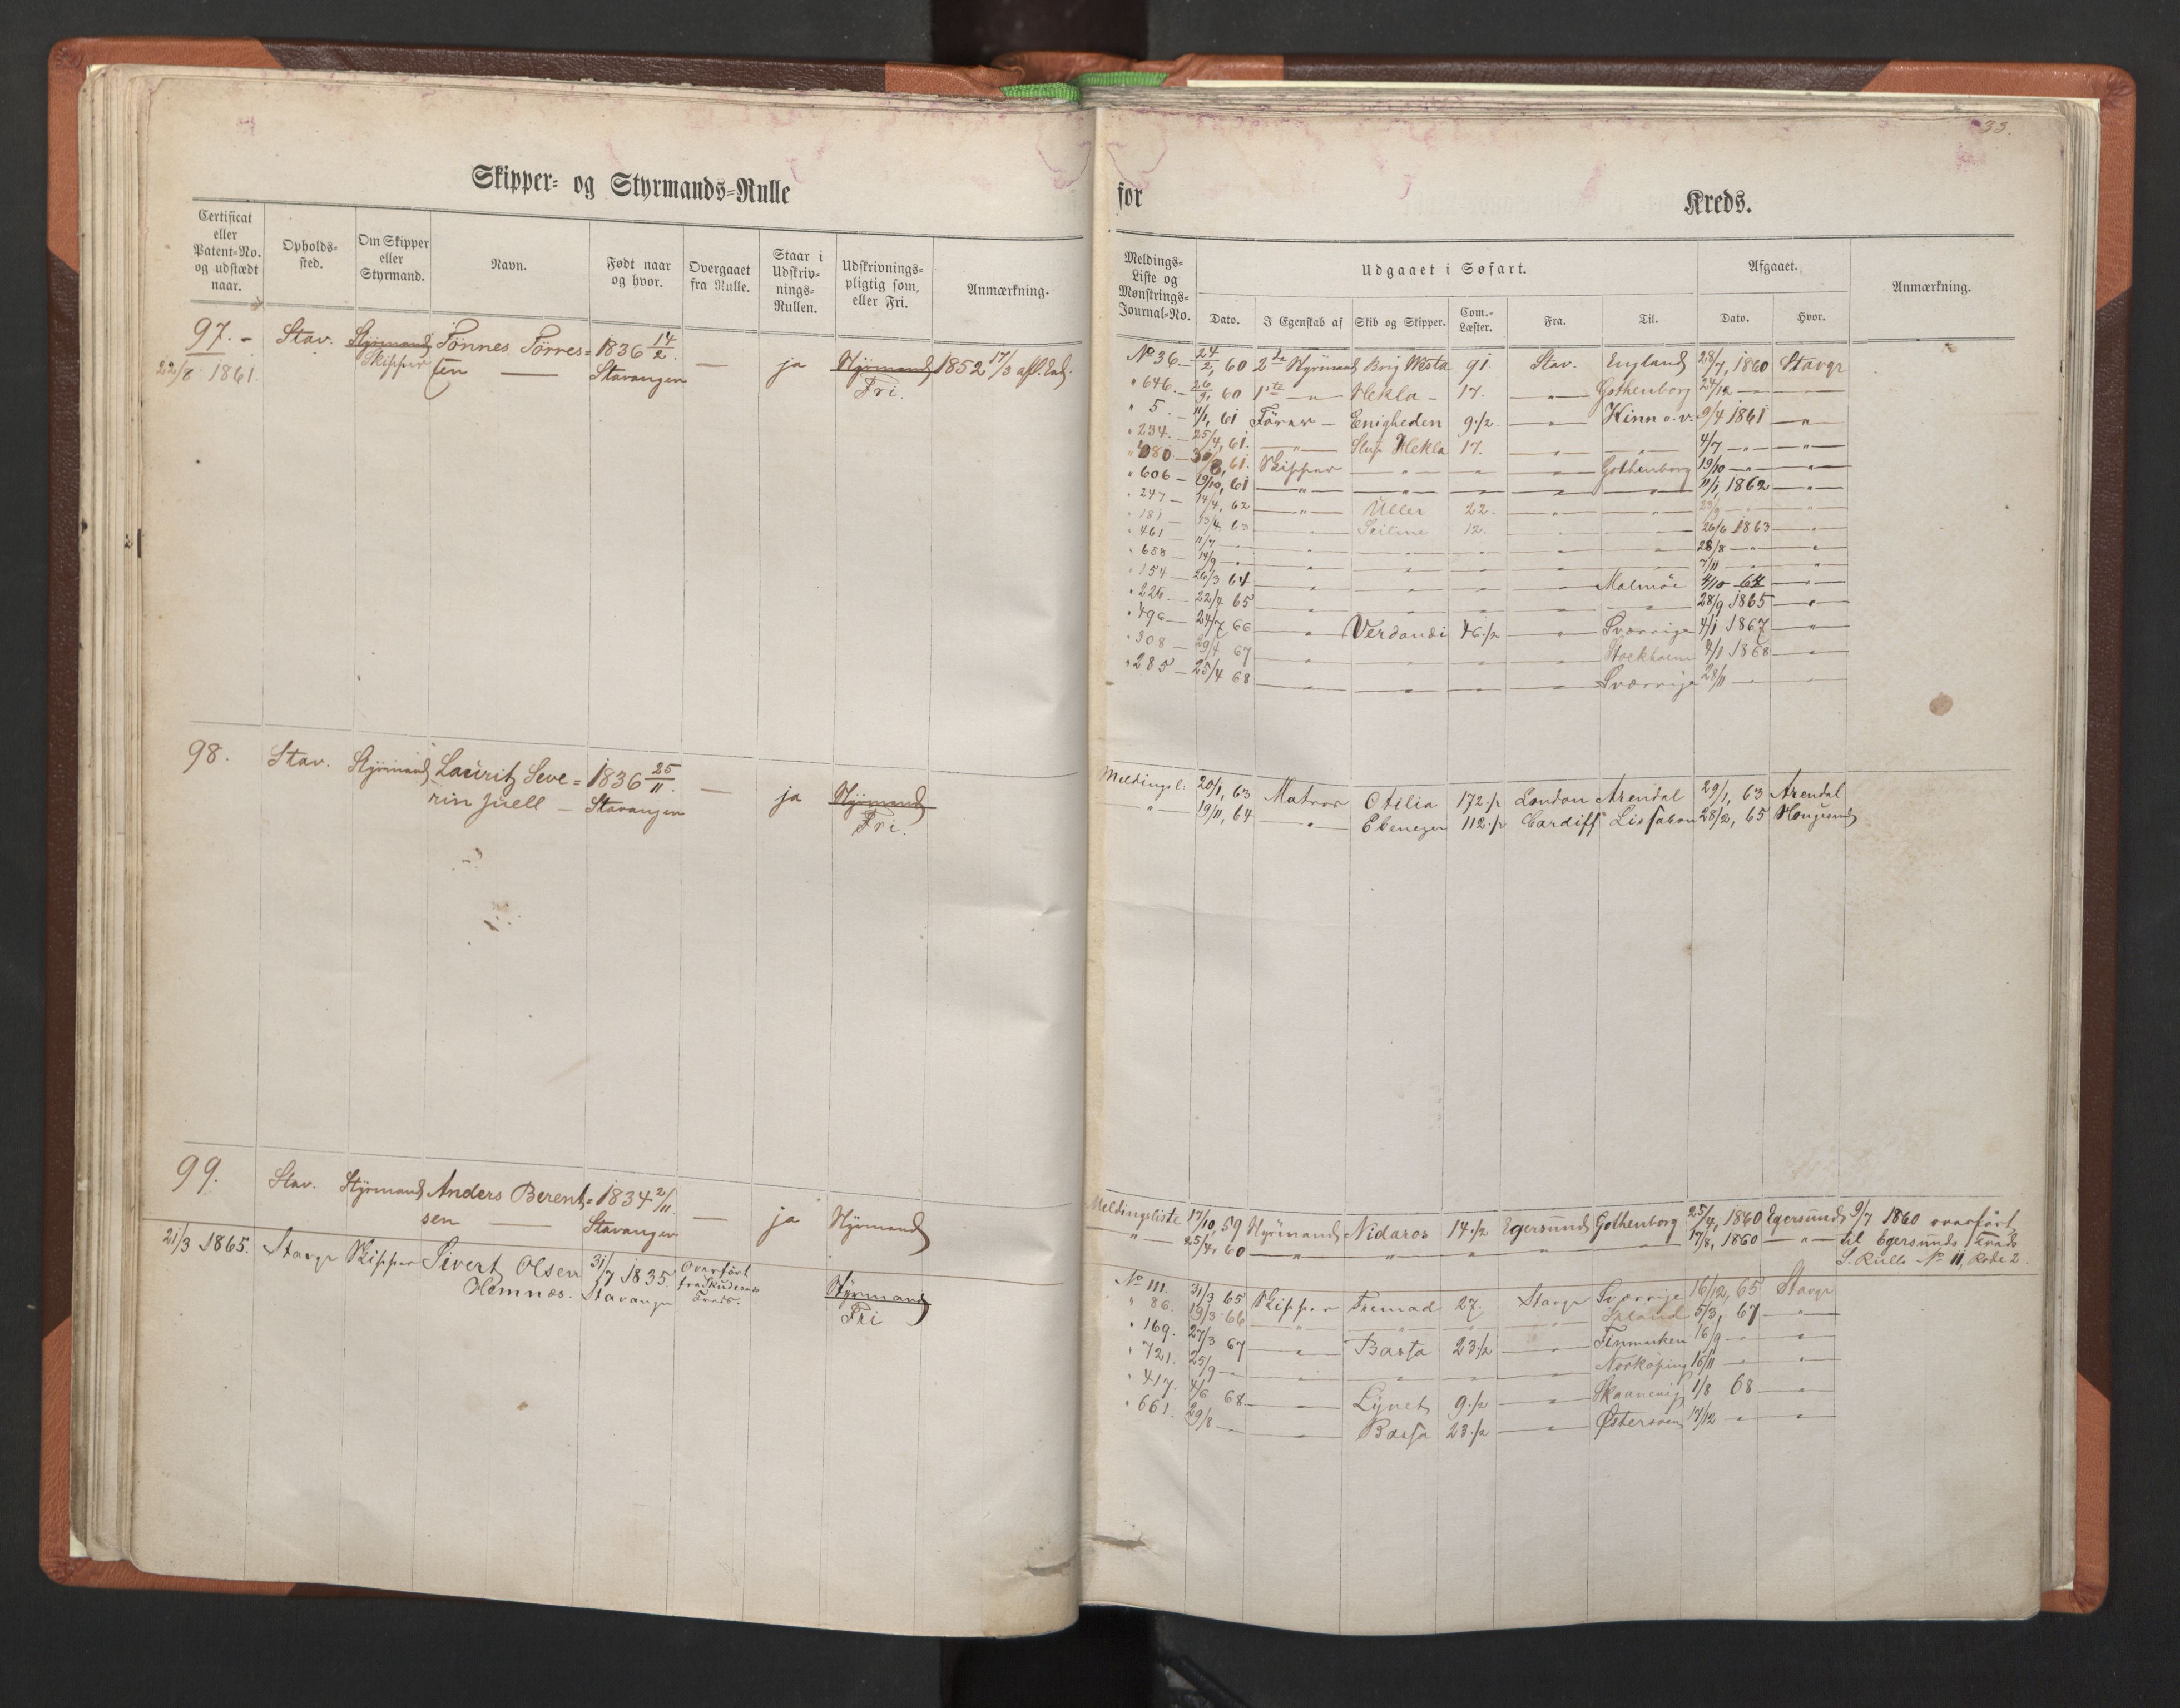 33.
Skipper= og Styrmands=Rulle
for Kreds.
Certificat eller Patent=No. og udstædt naar.
Opholds=sted.
Om Skipper eller Styrmand.
Navn.
Født naar og hvor.
Overgaaet fra Rulle.
Staar i Udskriv=nings=Rullen.
Udskrivnings=pligtig som, eller Fri.
Anmærkning.
Meldings=Liste og Mønstrings=Journal=No.
Udgaaet i Søfart.
Dato.
I Egenskab af
Skib og Skipper.
Com.=Læster.
Fra.
Til.
Afgaaet.
Dato.
Hvor.
Anmærkning.
97. - Stav. Styrmand Tönnes Törres= 1836 14/2. — ja Styrmand 1852 17/3
22/8 1861. Skipper sen — Stavanger Fri.
No 36 — 24/2, 60 2de Styrmand Brig Westa 91 Stav. England 28/7, 1860 Stavgr
" 646. — 26/9, 60 1ste — " Hekla — 17. — " — Gothenborg 24/12 — —
" 5. — 11/1, 61 Förer — Enigheden 9 1/2. — " — Kinn o. v. 9/4 1861 — " —
" 234. — 25/4, 61. — " — Slup Hekla 17. — " — " — 4/7 — " — " —
61. Skipper — " — " — " — Gothenborg 19/10 — " — " —
" 606 — 19/10, 61 — " — " — " — " — " — 11/1, 1862 — " —
" 247 — 14/4, 62 — " — Uller 22. — " — " — " —
" 181 — 13/4 63 — " — 12. — " — " — 26/6 1863 — " —
" 461 — 11/7 — " — " — " — " — " — " — 28/8 — " — " —
" 658 — 14/9 — " — " — " — " — " — " — 7/11 — " — " —
" 154 — 26/3 64 — " — " — " — " — Malmöe 4/10 64 — " —
" 226 — 22/4 65 — " — " — " — " — " — 28/9 1865 — " —
" 496 — 24/7 66 — " — Verdandi 46 1/2 — " — Sverrige 4/1 1867 — " —
" 308 — 29/4 67 — " — " — " — " — Stockholm 4/1 1868 — " —
" 285 — 25/4 68 — " — " — " — " — Sverrige 28/11 — " —
98. Stav. Styrmand Lauritz Seve= 1836 25/11. — ja Styrmand
rin Juell — Stavanger Fri.
Meldingsl. 20/1, 63 Matros Otilia 172 1/2 London Arendal 29/1, 63 Arendal
— " — 19/11, 64 — " — Ebenezer 112 1/2 Cardiff Lissabon 28/2, 65 Hougesund
99. Stav. Styrmand Anders Berent= 1834 2/11. — ja Styrmand
sen — Stavanger
Meldingsliste 17/10, 59 Styrmand Nidaros 14 1/2 Egersund Gothenborg 25/4, 1860 Egersund 9/7 1860 overfört
— " — 25/4, 60 — " — " — " — " — " — 17/8, 1860 — " — til Egersunds Kreds
S. Rulle No 11, Rode 2.
21/3 1865. Stavgr Skipper Sivert Olsen 31/7 1835. Overfört fra Skudesnæs Kreds. Styrmand
Hemnæs. Stavanger Fri
No 111. 31/3 65 Skipper Fremad 27. Stavgr Sverrige 16/12, 65 Stavgr
" 86. 19/3 66 — " — " — " — " — Island 5/3, 67 — " —
" 169. 27/3 67 — " — Bassa 23 1/2 — " — Finmarken 16/9 — " — " —
" 721. 25/9 — " — " — " — " — Norköping 16/11 — " — " —
" 417. 4/6 68 — " — Lynet 9 1/2 — " — Skaanevig 1/8 68 — " —
" 661. 29/8 — " — Bassa 23 1/2 — " — Østersöen 17/12 — " — " —